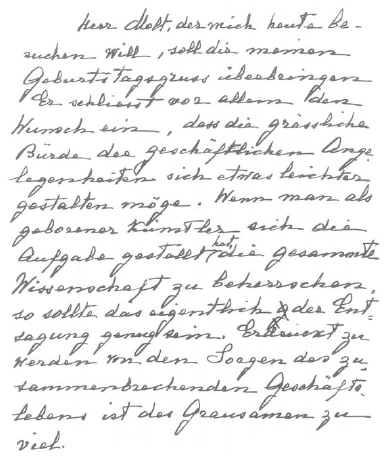 Herr Molt, der mich heute be-
suchen will, soll die meinen
Geburtstagsgruss überbringen
Er schliesst vor allem den
Wunsch ein, dass die grässliche
Bürde der geschäftlichen Ange
legenheiten sich etwas leichter
gestalten möge. Wenn man als
geborener Künstler sich die
Aufgabe gestellt hat, die gesammte
Wissenschaft zu beherrschen,
so sollte das eigentlich der Ent-
sagung genug sein. Erdrückt zu
werden von den Sorgen des zu
sammenbrechenden Geschäfts
lebens ist des Grausamen zu
viel.